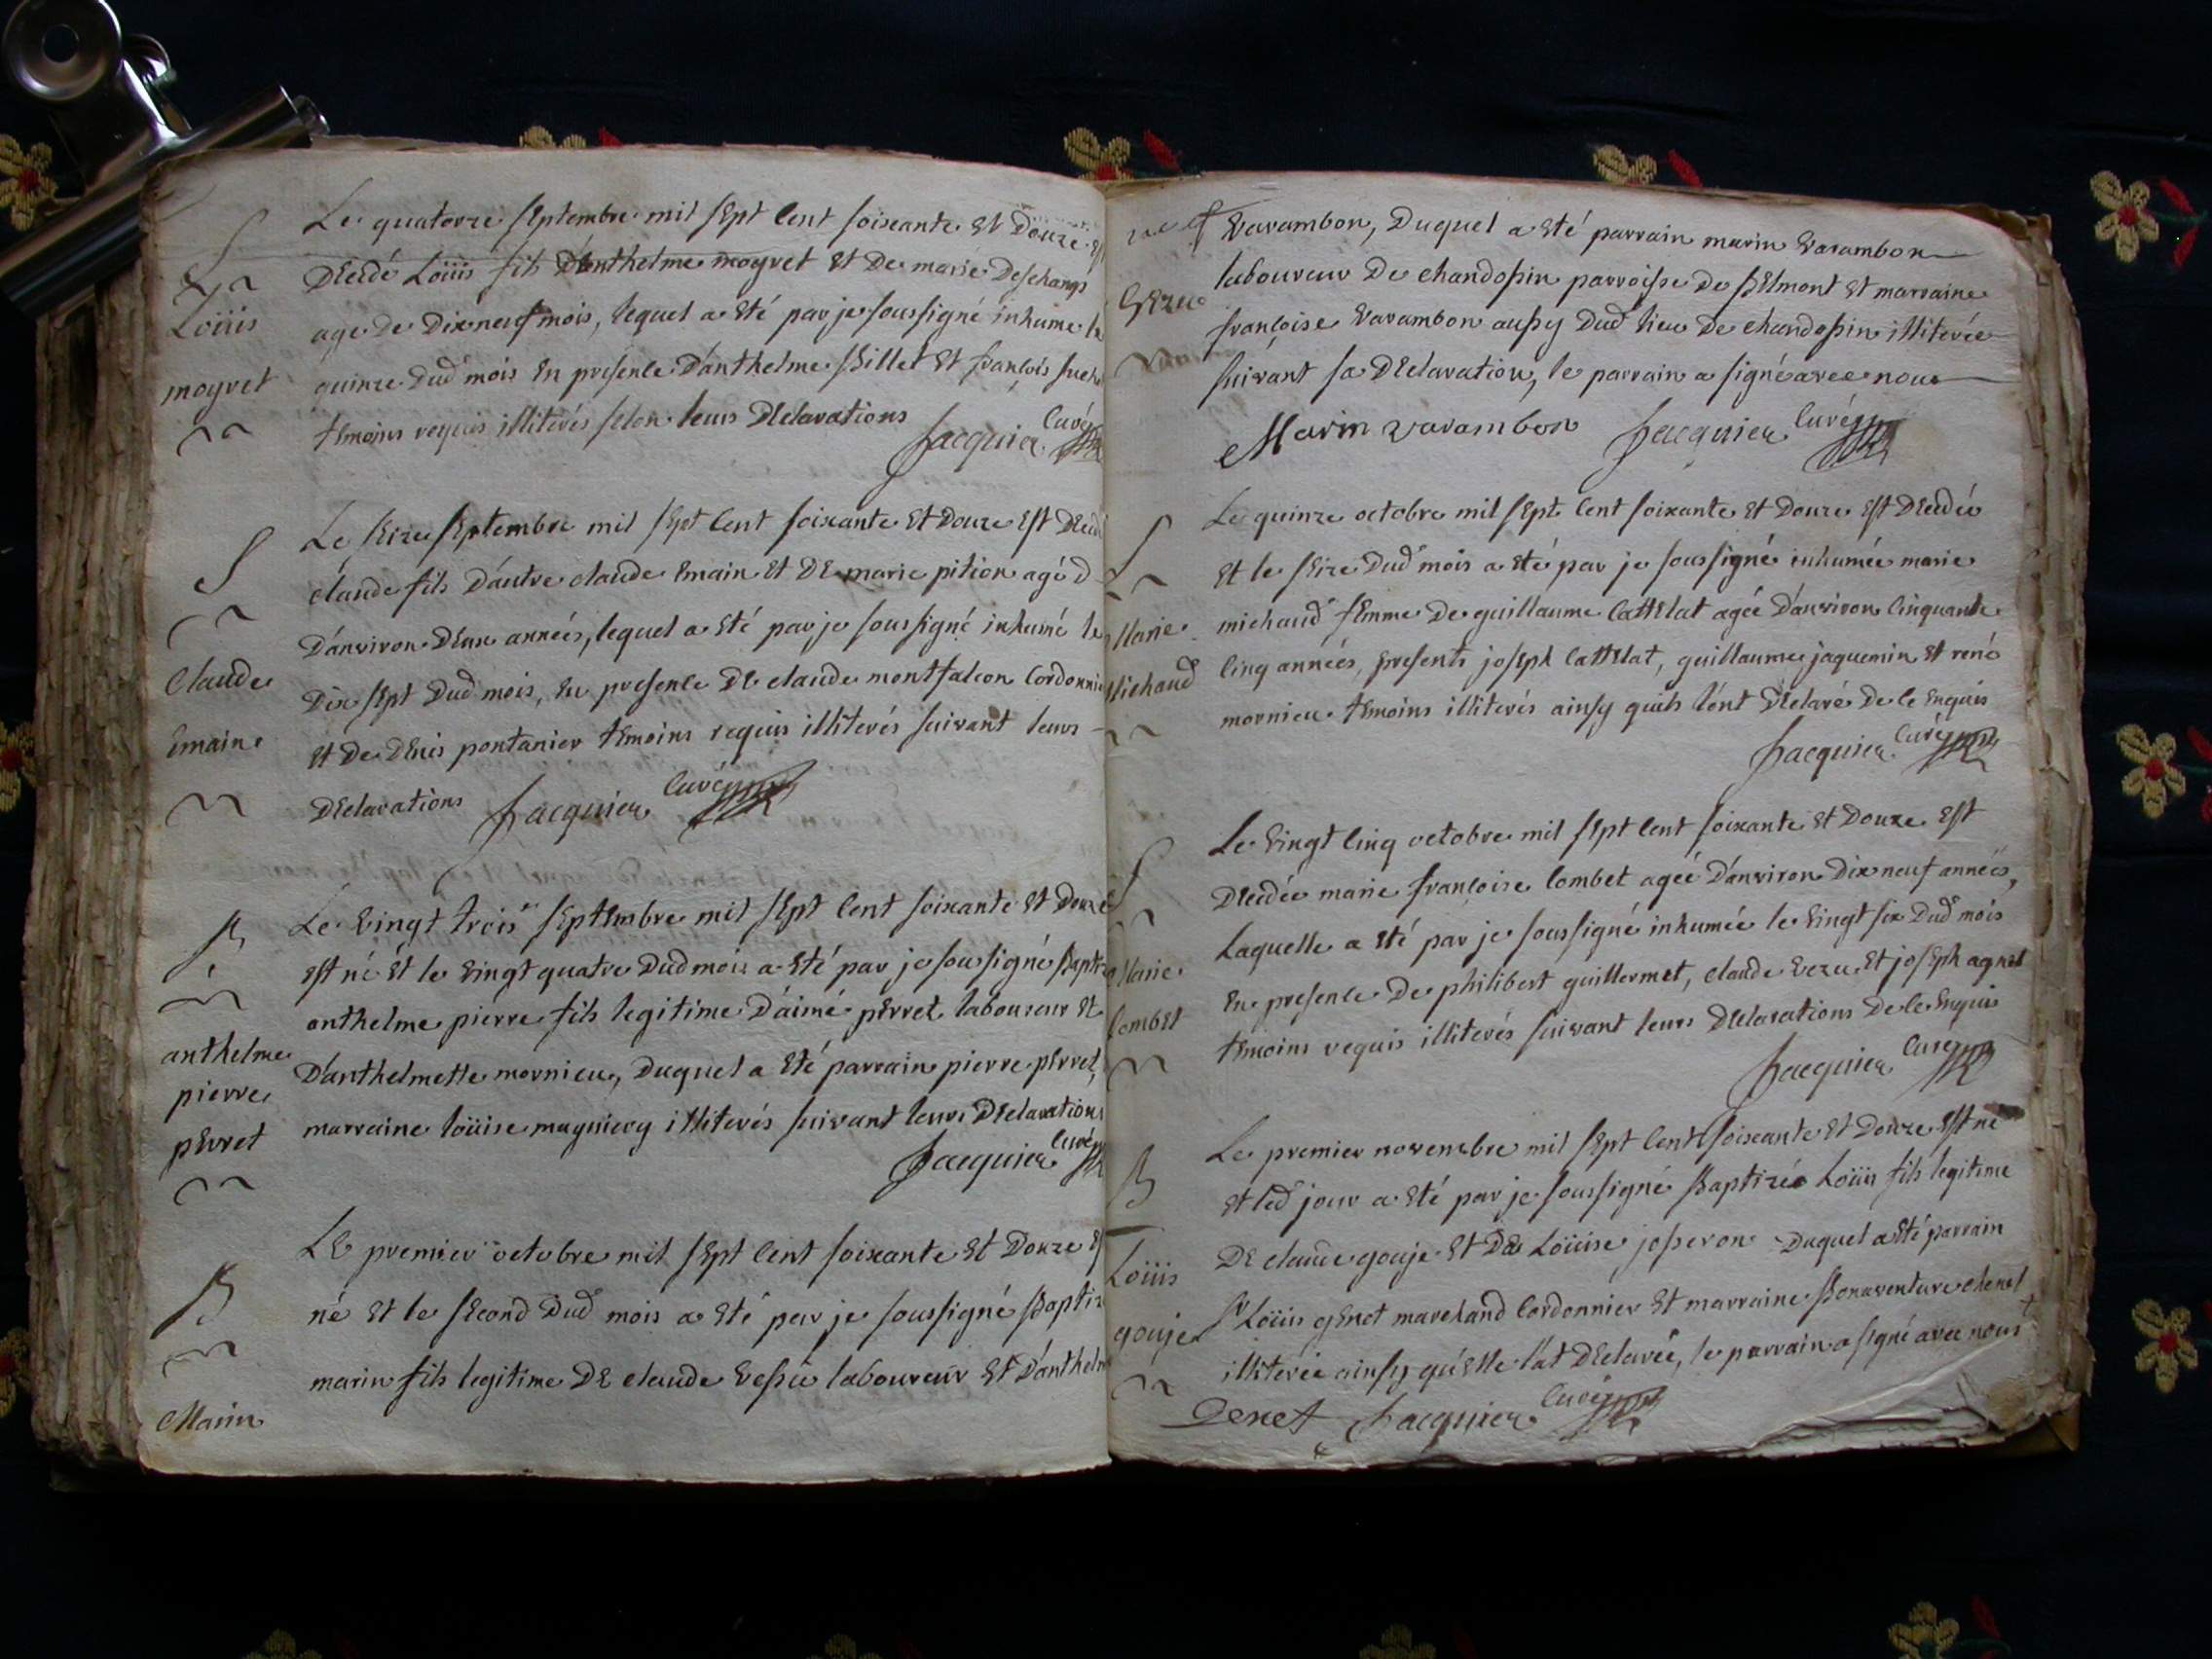 S
Loüis
moyret
Le quatorze septembre mil sept cent soixante et douze
decedé Loüis fils d'anthelme moyret et de marie deschamps
age de dix neuf mois, lequel a eté par je soussigné inhume le
quinze dud mois en presence d'anthelme Billet et françois
temoins requis illiterés selon leurs declarations
Jacquier Curé
S
Claude
Emain
Le seize septembre mil sept cent soixante et douze est
claude fils d'autre claude Emain et de marie pition agé d
d'anviron deux années, lequel a eté par je soussigné inhumé le
dix sept dud mois, en presence de claude montfalcon Cordonni
et de denis pontanier temoins requis illiterés suivant leurs
declarations Jacquier Curé
B
anthelme
pierre
perret
Le vingt trois septembre mil sept cent soixante et douze
est né et le vingt quatre dud mois a eté par je soussigné Bapti
anthelme pierre fils legitime d'aimé perret laboureur et
d'anthelmette mornieu, duquel a eté parrain pierre perret,
marraine loüise magnieny illiterés suivant leurs declarations
Jacquier Curé
B
Marin
Le premier octobre mil sept cent soixante et douze
né et le second dud mois a eté par je soussigné Baptiz
marin fils legitime de claude Vezu laboureur et d'anthelm
Vezu
Varambon, duquel a eté parrain marin Varambon
laboureur de chandossin parroisse de Belmont et marraine
françoise Varambon aussy dud lieu de chandossin illiterée
suivant sa declaration, le parrain a signé avec nous
Marin varambon Jacquier Curé
S
Marie
Michaud
Le quinze octobre mil sept cent soixante et douze est decedée
et le seize dud mois a eté par je soussigné inhumée marie
michaud femme de guillaume Cattelat agée d'anviron cinquante
cinq années, presents joseph Cattelat, guillaume jaquemin et rené
mornieu temoins illiterés ainsy quils l'ont declaré de ce enquis
Jacquier Curé
S
Marie
Combet
Le vingt cinq octobre mil sept cent soixante et douze est
decedée marie françoise Combet agée d'anviron dix neuf années,
Laquelle a eté par je soussigné inhumée le vingt six dud mois
en presence de philibert guillermet, claude Vezu et joseph agnel
temoins requis illiterés suivant leurs declarations de ce enquis
Jacquier Curé
B
Loüis
gouje
Le premier novembre mil sept cent soixante et douze est né
et led jour a eté par je soussigné Baptizé Loüis fils legitime
de claude gouje et de Loüise josseron duquel a eté parrain
Sr Loüis genet marchand Cordonnier et marraine Bonaventure chenet
illiterée ainsy qu'elle l'at declarée, le parrain a signé avec nous
Jenet Jacquier Curé